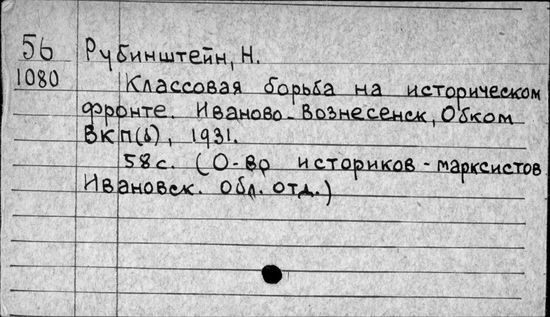 56 Рубинштейн, Н.
1080 Классовая борьба на историческом
фронте. Иваново-Вознесенск, Обком
ВКП(б), 1931.
58 с. (О-во историков-марксистов
Ивановск. обл. отд.)